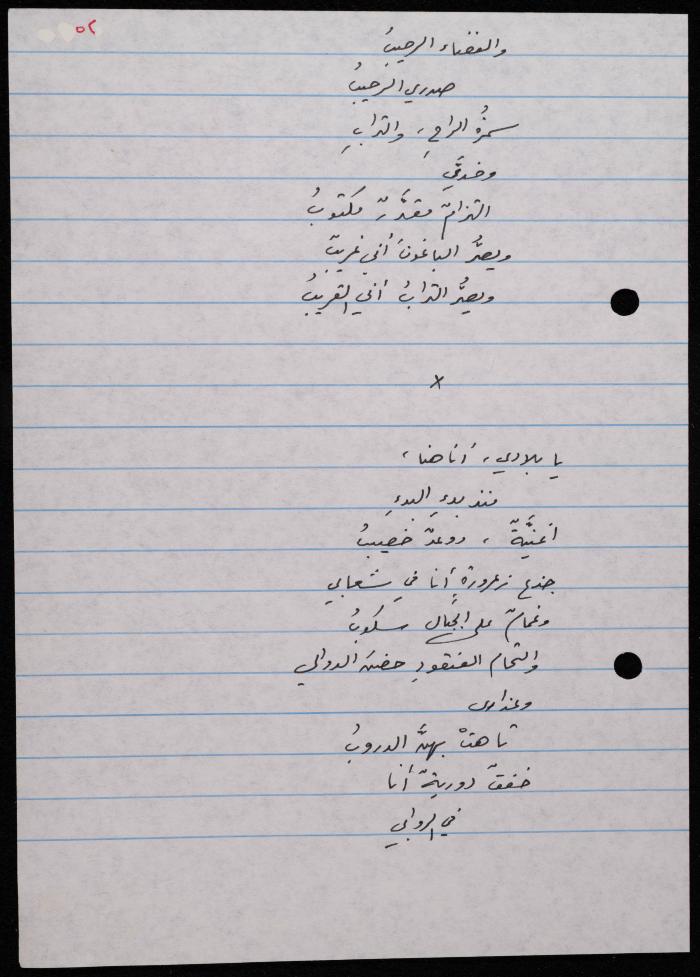 ٥٢
والفضاء الرحيبُ
صدري الرحيبُ
سمرةُ الراحِ، والترابِ
وخدّي
التزامٌ مقدَّرٌ مكتوبُ
ويصرُّ الباغونَ أني غريبٌ
ويصرُّ الترابُ أني القريبُ
x
يا بلادي، أنا هنا،
منذ بدءِ البدءِ
أغنيَّةٌ، ووعدٌ خصيبُ
جذع زعرورةٍ أنا في شعابي
وغمامٌ على الجبال سكوبُ
والتمام العنقودِ حضنَ الدوالي
وعذارى
تاهتْ بهنَّ الدروبُ
خفقُ دوريّةٍ أنا
في الروابي